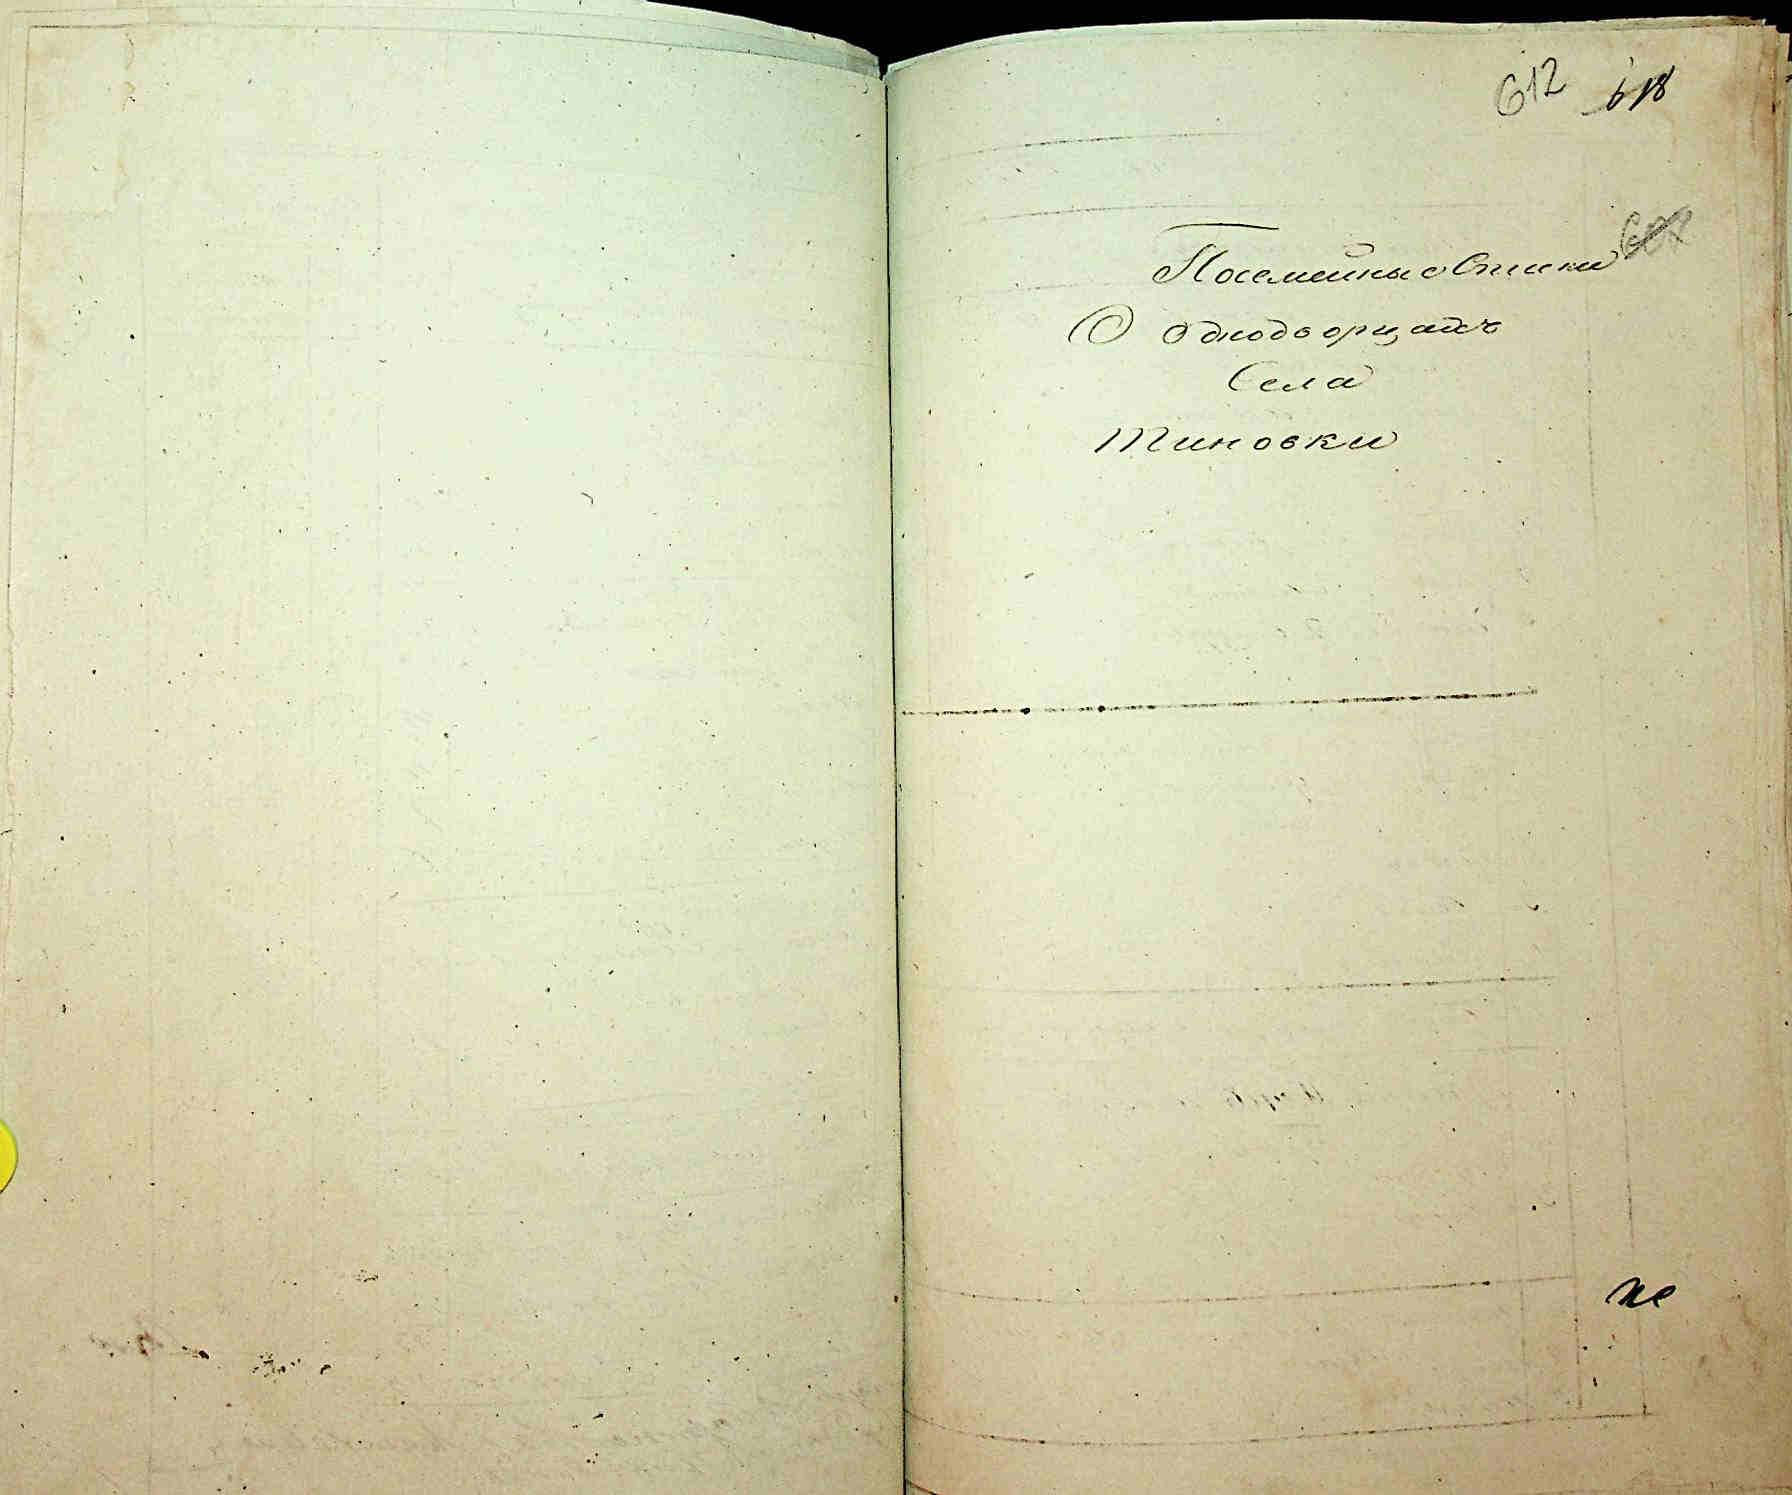 612 618
Посемейные Списки
О Однодворцахъ
Села
Тиновки
не